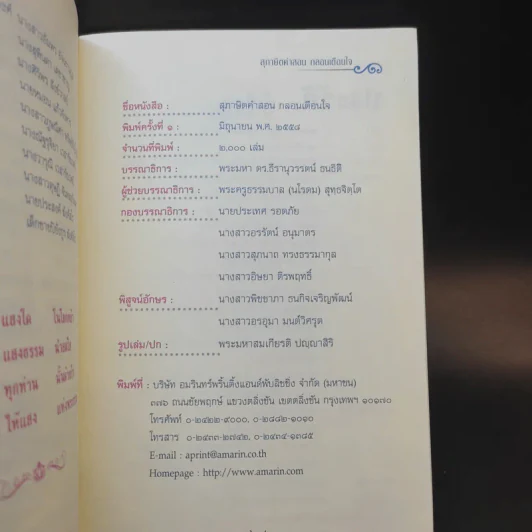 สุภาษิตคำสอน กลอนเตือนใจ
ชื่อหนังสือ : สุภาษิตคำสอน กลอนเตือนใจ
พิมพ์ครั้งที่ ๑ : มิถุนายน พ.ศ. ๒๕๕๔
จำนวนที่พิมพ์ : ๒,๐๐๐ เล่ม
บรรณาธิการ : พระมหา ดร.ธีรานุวรรตน์ ธนธิติ
ผู้ช่วยบรรณาธิการ : พระครูธรรมบาล (นโรตม) สุทฺธจิตฺโต
กองบรรณาธิการ : นายประเทศ รอดภัย
นางสาวอรรัตน์ อนุมาตร
นางสาวสุภนาถ ทรงธรรมากุล
นางสาวอิษยา ติรพฤทธิ์
พิสูจน์อักษร : นางสาวพิชชาภา ธนกิจเจริญพัฒน์
นางสาวอรอุมา มนต์วิศรุต
รูปเล่ม/ปก : พระมหาสมเกียรติ ปญฺญาสิริ
พิมพ์ที่ : บริษัท อมรินทร์พริ้นติ้งแอนด์พับลิชชิ่ง จำกัด (มหาชน)
๓๗๖ ถนนชัยพฤกษ์ แขวงตลิ่งชัน เขตตลิ่งชัน กรุงเทพฯ ๑๐๑๗๐
โทรศัพท์ ๐-๒๔๒๒-๙๐๐๐, ๐-๒๘๘๒-๑๐๑๐
โทรสาร ๐-๒๔๓๓-๒๗๔๒, ๐-๒๔๓๔-๑๓๘๕
E-mail : aprint@amarin.co.th
Homepage : http://www.amarin.com
แสงใด
แสงธรรม
ทุกท่าน
ให้แสง